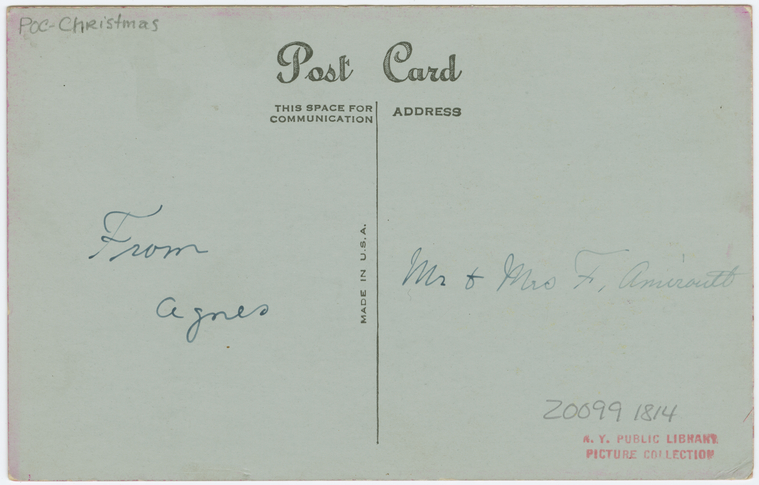 POC-Christmas
Post Card
THIS SPACE FOR
COMMUNICATION
ADDRESS
MADE IN U.S.A.
From
Agnes
Mr & Mrs F. Amirault
Z0099 1814
N. Y. PUBLIC LIBRARY
PICTURE COLLECTION